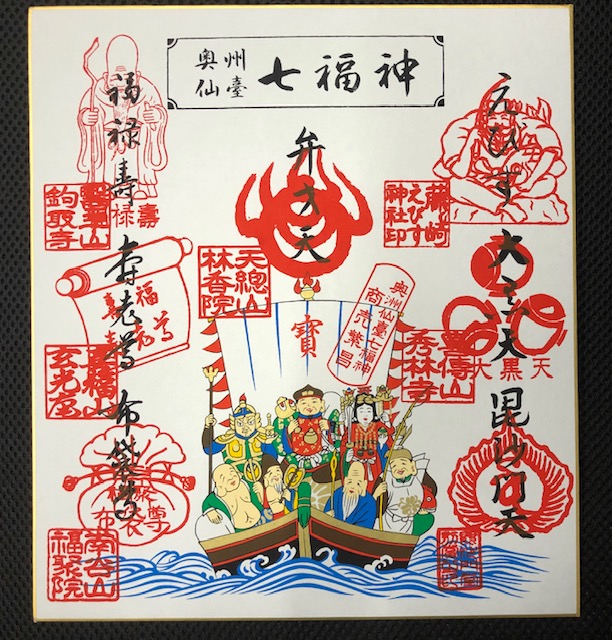 奥州仙臺七福神
えびす
藤崎えびす神社印
大黒天
大黒天
秀林寺
毘沙門天
弁才天
天總山林香院
奥州仙臺七福神
商売繁昌
寶
福禄寿
福禄壽
釣取寺
寿老尊
玄光庵
布袋尊
布袋尊
南岳山福聚院